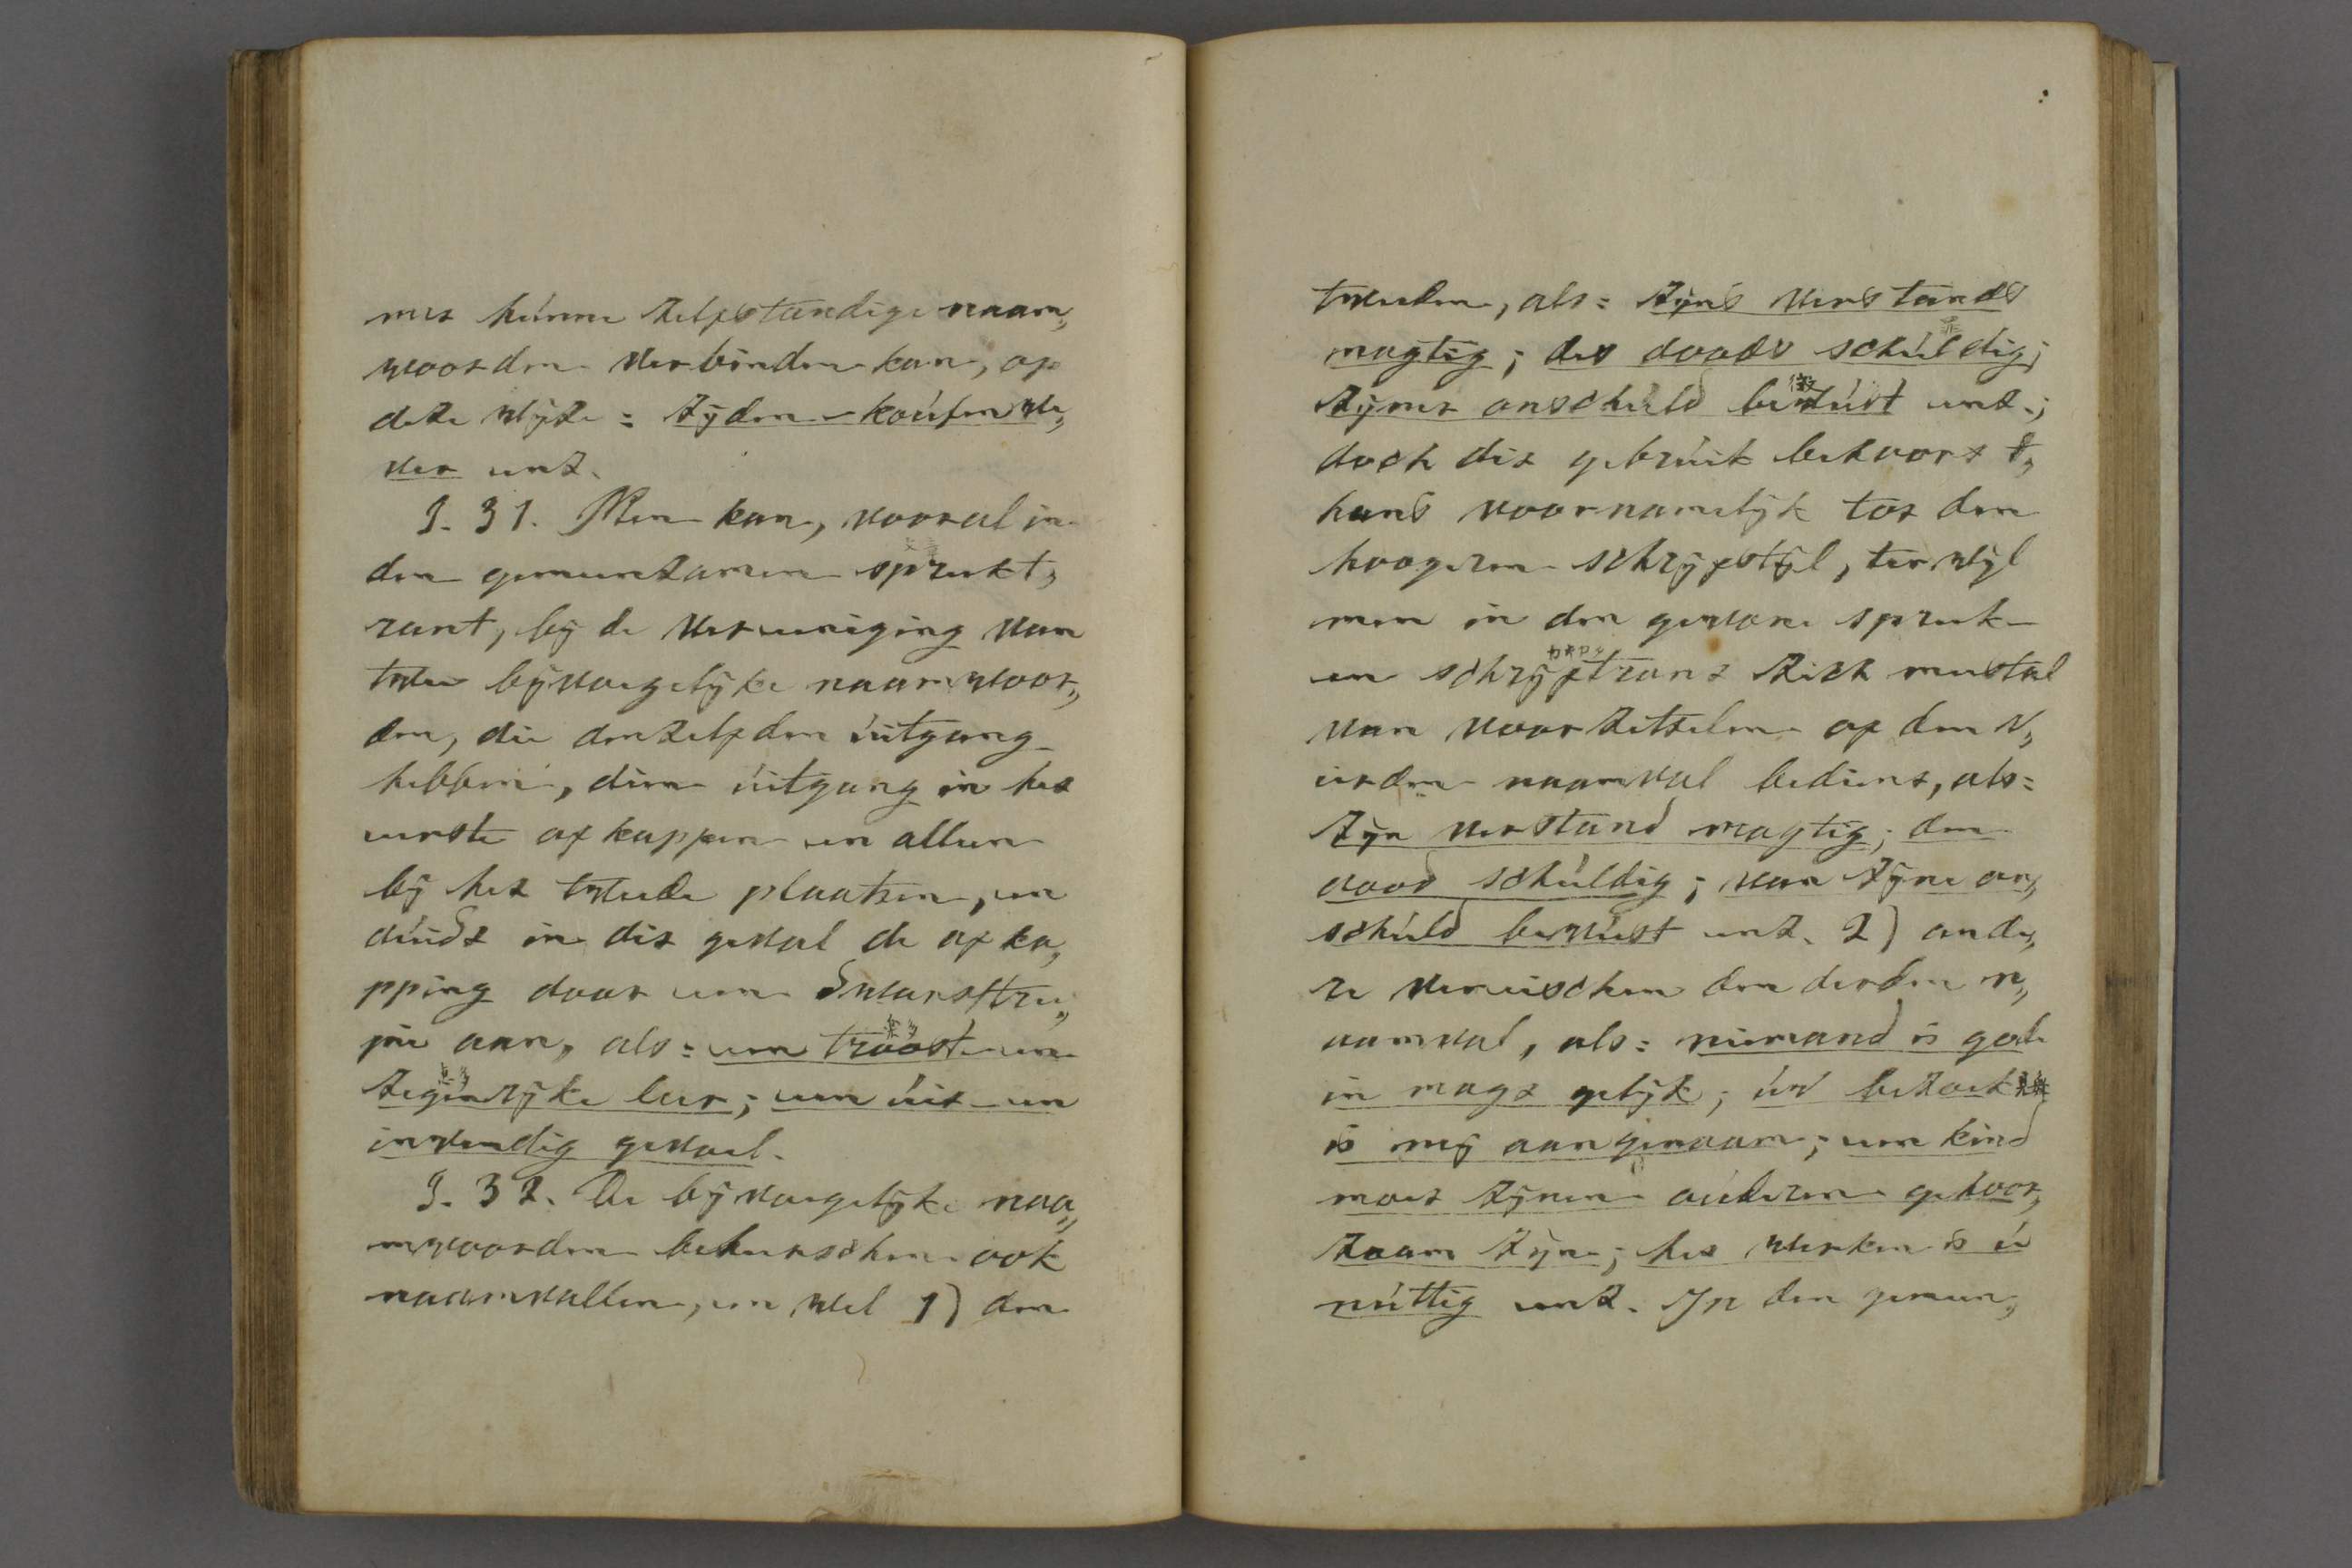 met húnne zelfstandige naam„
woorden verbinden kan, op
deze wijze: zyden-koúsenwe„
ver enz.
§. 31. Men kan, vooral in
den gemeenzamen spreekt„
rant, bÿ de vereeniging van
twee bÿvoegelÿke naamwoor„
den, die denzelfden úitgang
hebben, dien úitgang in het
eerste afkappen en alleen
bÿ het tweede plaatsen, en
dúidt in dit geval de afka„
pping door een dwarsstree„
pje aan, als: een troost- en
zegenrÿke leer; een úit- en
inwendig gevoel.
§. 32. De bÿvoegelÿke naa„
mwoorden beheerschen ook
naamvallen, en wel 1) den
tweeden, als: zÿns verstands
magtig; des doods schúldig;
zÿner onschuld bewúst enz.;
doch dit gebrúik behoort t„
hans voornamelÿk tot den
hoogeren schrÿfstÿl, terwÿl
men in den gewone spreek-
en schrÿftrant zich meestal
van voorzetselen of den v„
ierden naamval bedient, als:
zÿn verstand magtig; den
dood schúldig; van zÿne on„
schúld bewúst enz. 2) ande„
re vereischen den derden n„
aamval, als: niemand is gode
in magt gelÿk; úw bezoek
is mÿ aangenaam; een kind
moet zÿnen oúderen gehoor„
zaam zÿn; het werken is ú
núttig enz. In den gemeen„